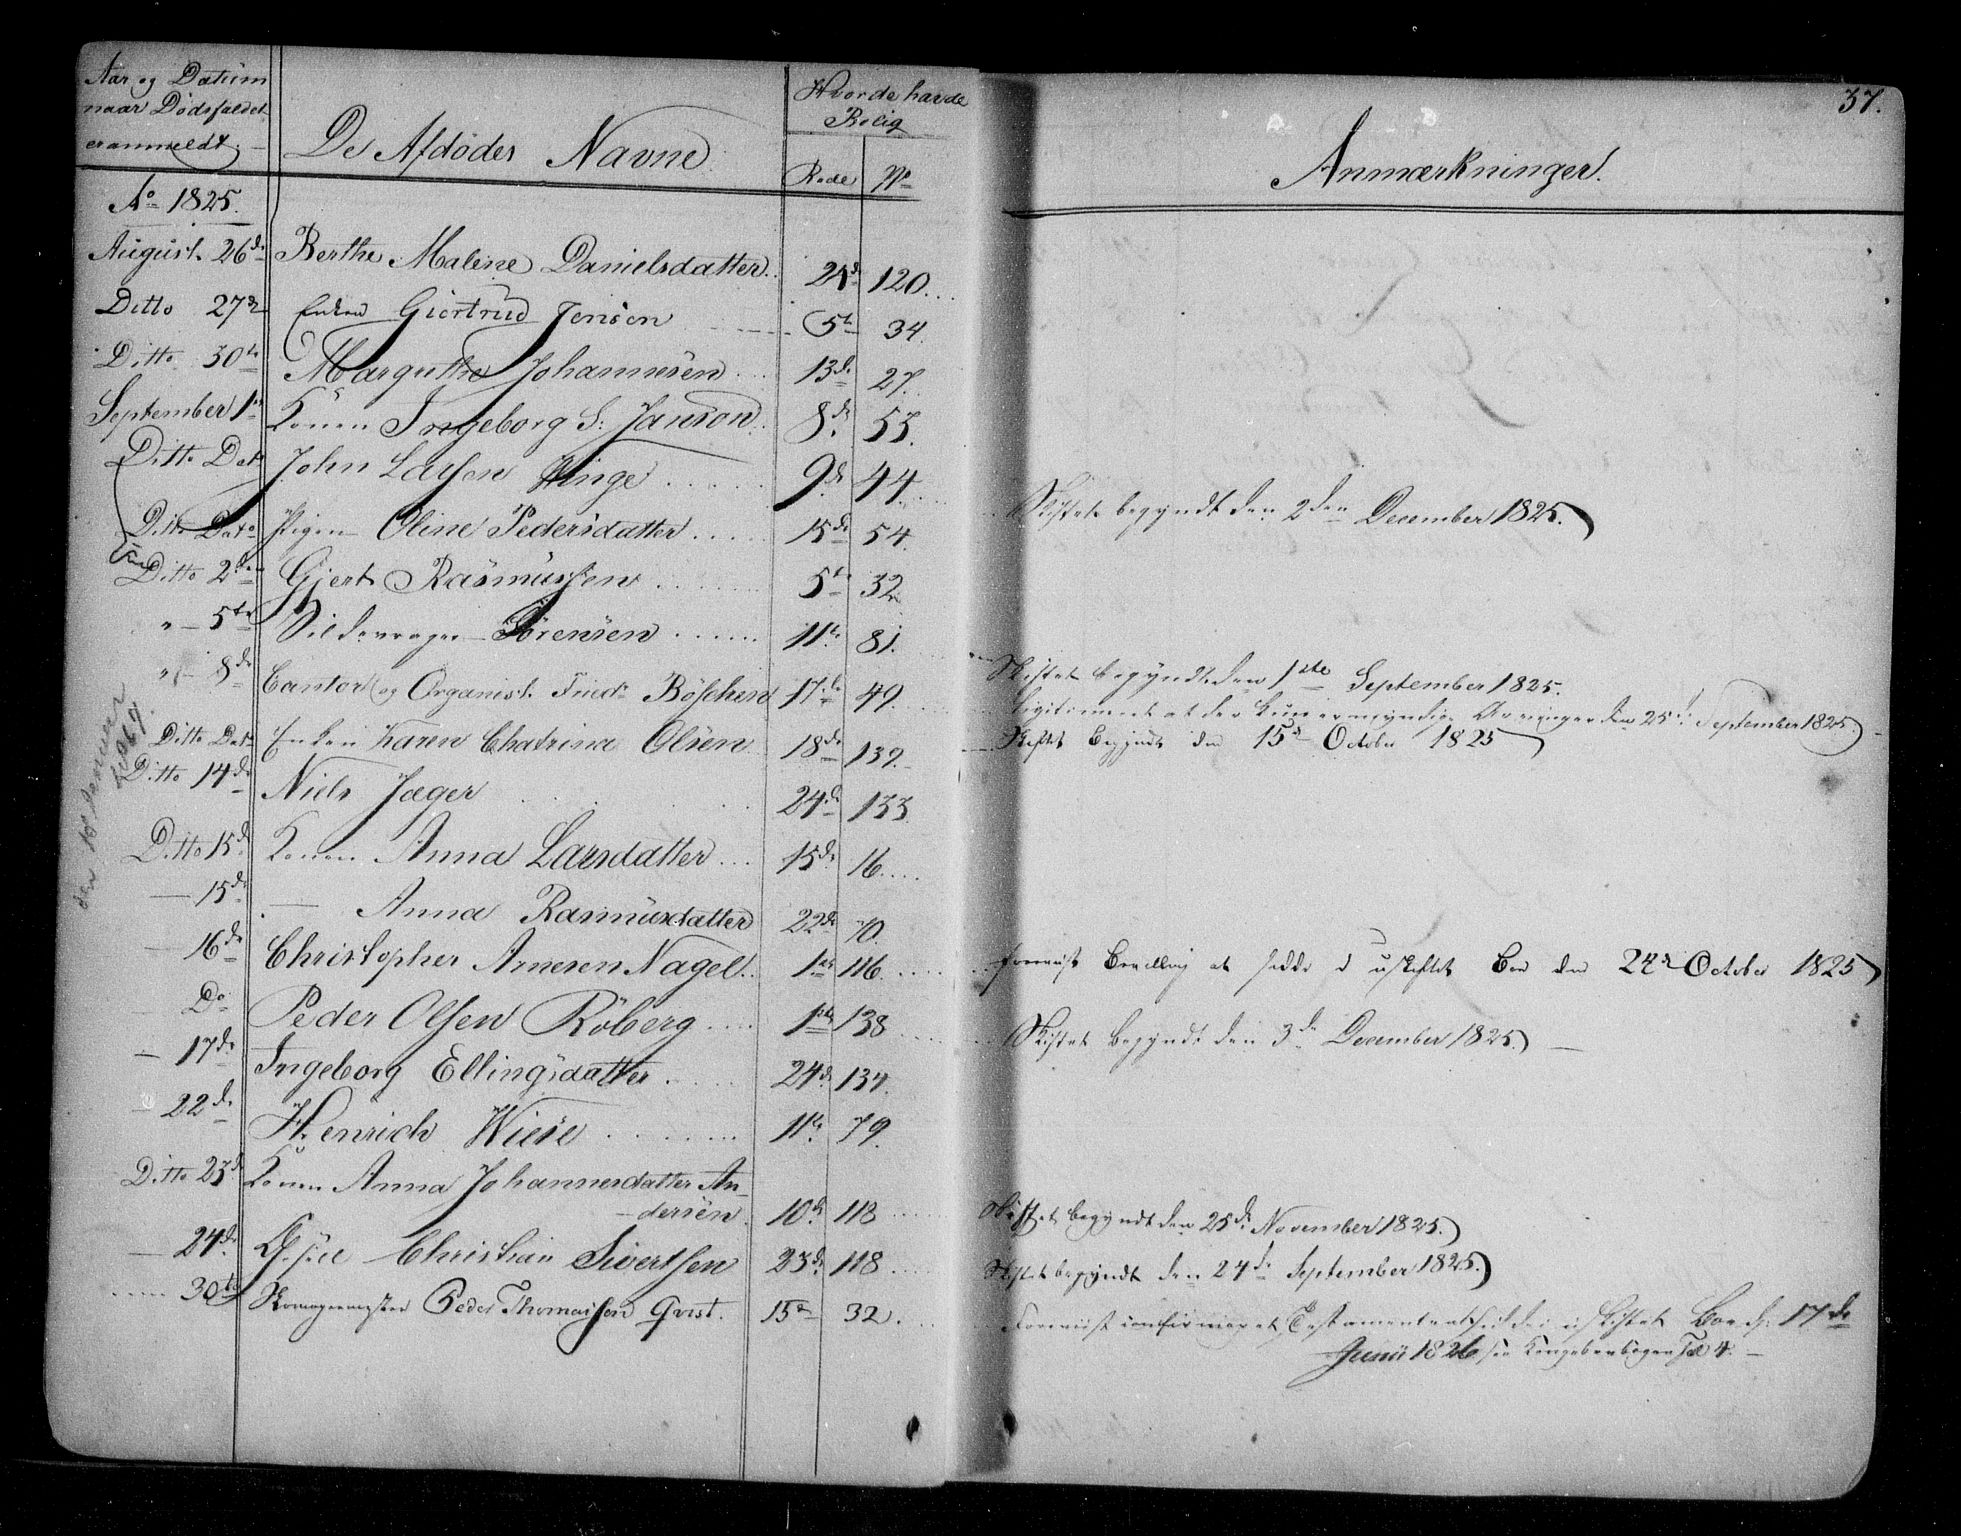 Aar og Datum
naar Dødsfaldet
er anmeldt.
De Afdødes Navne
Hvor de havde
Bolig
Rode No
37.
Anmærkninger.
Ao 1825.
August 26de Berthe Malene Danielsdatter 24de 120.
Ditto 27de Enken Giertrud Jensen 5te 34.
Ditto 30te Margrethe Johannesen 13de 27.
September 1te Konen Ingeborg S. Janson 8de 53.
Ditto Dato John Larsen Hinge 9de 44. Skiftet begyndt den 2den December 1825.
Ditto Dato Pigen Oline Pedersdatter 15de 54.
Ditto 2de Giert Rasmussen 5te 32
" — 5te Sildevrager Sörensen 11te 81.
" — 8de Cantor og Organist Friedr Böschen 17de 49. Skiftet begyndt den 1ste September 1825.
Ditto Dato Enken Karen Chatrina Olsen 18de 139. Skiftet begyndt den 15de October 1825
Legitimeret at der kun er myndige Arvinger den 25de September 1825.
Ditto 14de Niels Jæger 24de 133.
Ditto 15de Konen Anna Larsdatter 15de 16.
— 15de — Anna Rasmusdatter 22de 70.
— 16de Christopher Arnesen Nagel 1ste 116. foreviist Bevilling at sidde i uskiftet Boe den 24de October 1825
Do Peder Olsen Röberg 1ste 138 Skiftet begyndt den 3de December 1825.
— 17de Ingeborg Ellingsdatter 24de 134.
— 22de Henrich Wiese 11te 79.
Ditto 23de Konen Anna Johannesdatter An-
dersen 10de 118 Skiftet begyndt den 25de November 1825.
— 24de Christian Sivertsen 23de 118 Skiftet begyndt den 24de September 1825.
30te Skomagermester Peder Thomassen Qvist. 15de 32. Foreviist confirmeret Testament at sidde i uskiftet Boe d. 17de
Junii 1826 see Kongebrevbogen Fol 4.
den 10 Januar